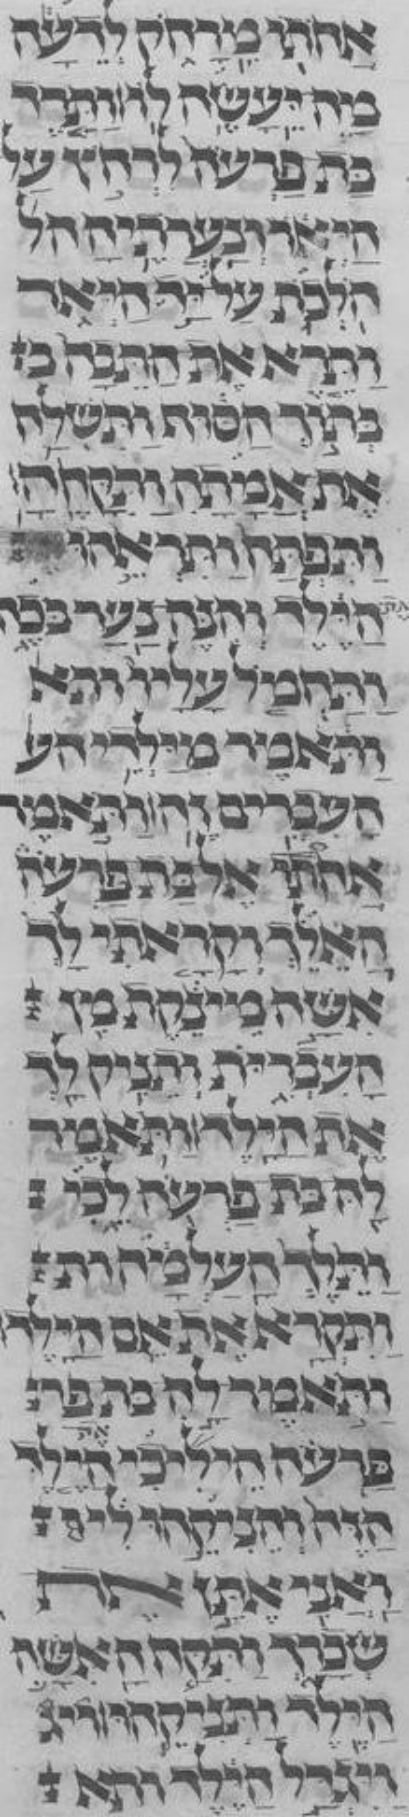 אֲחֹתוֹ מֵרָחֹק לְדֵעָה
מַה יֵּעָשֶׂה לוֹ וַתֵּרֶד
בַּת פַּרְעֹה לִרְחֹץ עַל
הַיְאֹר וְנַעֲרֹתֶיהָ הֹל
הֹלְכֹת עַל יַד הַיְאֹר
וַתֵּרֶא אֶת הַתֵּבָה בְּ
בְּתוֹךְ הַסּוּף וַתִּשְׁלַח
אֶת אֲמָתָהּ וַתִּקָּחֶהָ
וַתִּפְתַּח וַתִּרְאֵהוּ
אֶת הַיֶּלֶד וְהִנֵּה נַעַר בֹּכֶה
וַתַּחְמֹל עָלָיו וַתֹּא
וַתֹּאמֶר מִיַּלְדֵי הָעִ
הָעִבְרִים זֶה וַתֹּאמֶר
אֲחֹתוֹ אֶל בַּת פַּרְעֹה
הַאֵלֵךְ וְקָרָאתִי לָךְ
אִשָּׁה מֵינֶקֶת מִן
הָעִבְרִיֹּת וְתֵינִק לָךְ
אֶת הַיָּלֶד וַתֹּאמֶר
לָהּ בַּת פַּרְעֹה לֵכִי
וַתֵּלֶךְ הָעַלְמָה וַת
וַתִּקְרָא אֶת אֵם הַיָּלֶד
וַתֹּאמֶר לָהּ בַּת פר
פַּרְעֹה הֵילִיכִי אֶת הַיֶּלֶד
הַזֶּה וְהֵינִקִהוּ לִי
וַאֲנִי אֶתֵּן אֶת
שְׂכָרֵךְ וַתִּקַּח הָאִשָּׁה
הַיֶּלֶד וַתְּנִיקֵהוּ ויג
וַיִּגְדַּל הַיֶּלֶד ותא